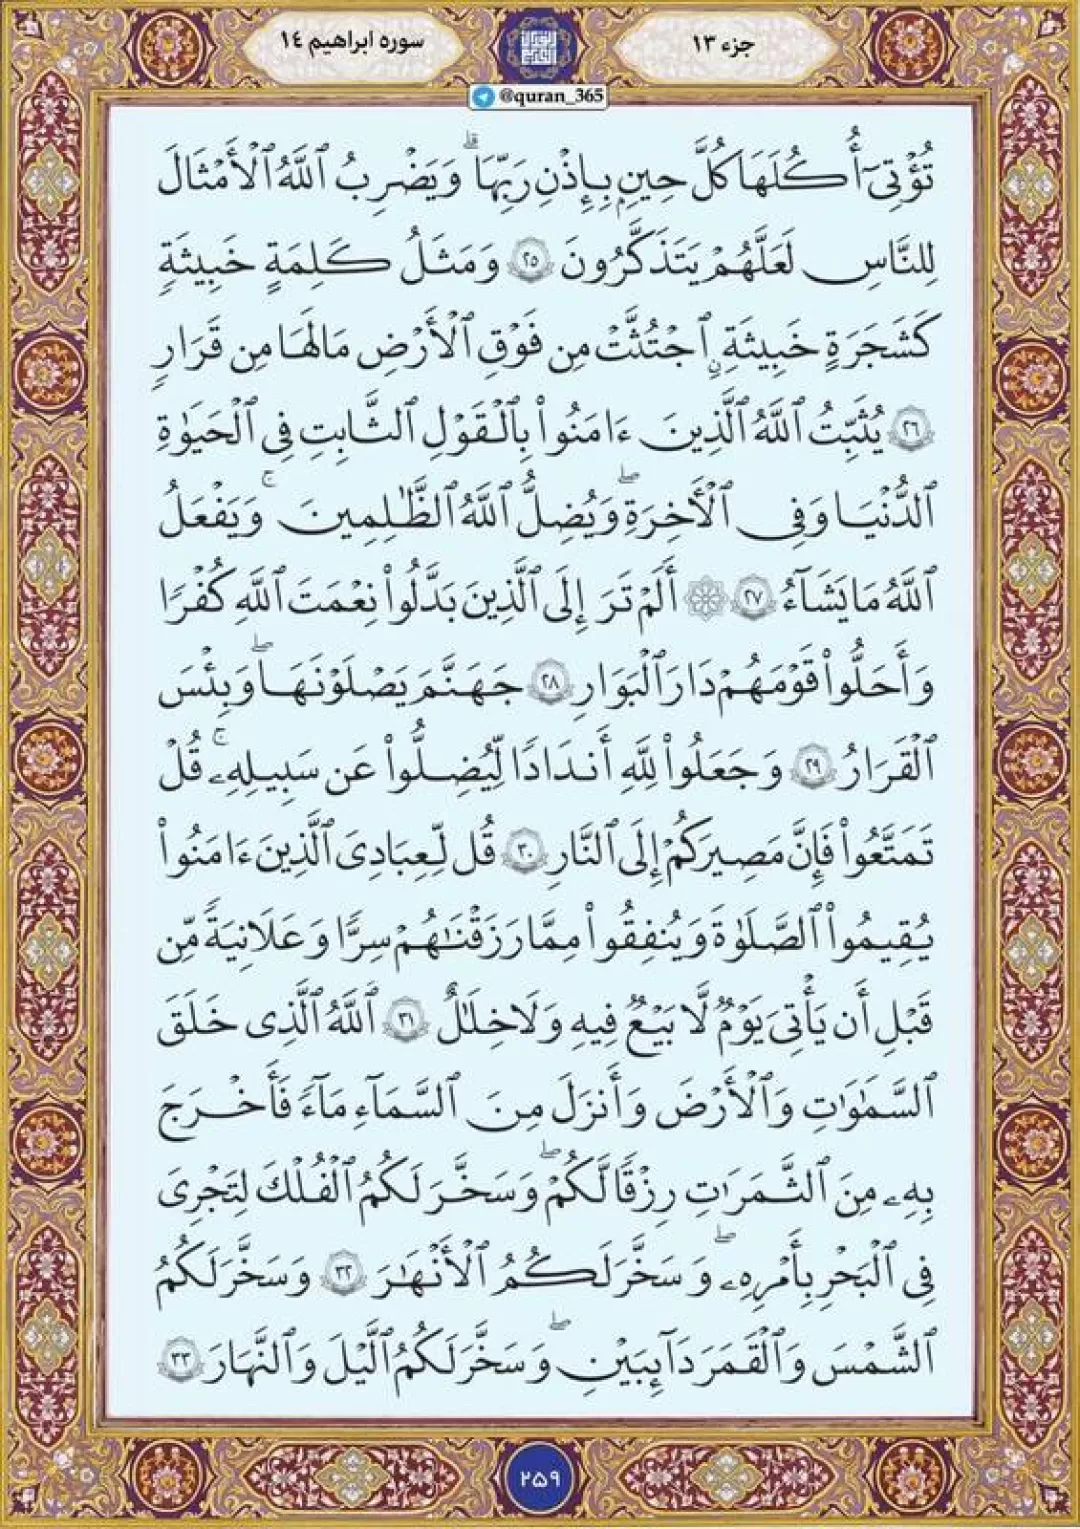 جزء ۱۳
سوره ابراهیم ۱٤
@quran_365
تُؤۡتِيٓ أُكُلَهَا كُلَّ حِينِۭ بِإِذۡنِ رَبِّهَاۗ وَيَضۡرِبُ ٱللَّهُ ٱلۡأَمۡثَالَ
لِلنَّاسِ لَعَلَّهُمۡ يَتَذَكَّرُونَ ۲۵ وَمَثَلُ كَلِمَةٍ خَبِيثَةٖ
كَشَجَرَةٍ خَبِيثَةٍ ٱجۡتُثَّتۡ مِن فَوۡقِ ٱلۡأَرۡضِ مَا لَهَا مِن قَرَارٖ
۲۶ يُثَبِّتُ ٱللَّهُ ٱلَّذِينَ ءَامَنُواْ بِٱلۡقَوۡلِ ٱلثَّابِتِ فِي ٱلۡحَيَوٰةِ
ٱلدُّنۡيَا وَفِي ٱلۡأٓخِرَةِۖ وَيُضِلُّ ٱللَّهُ ٱلظَّـٰلِمِينَۚ وَيَفۡعَلُ
ٱللَّهُ مَا يَشَآءُ ۲۷ ۞ أَلَمۡ تَرَ إِلَى ٱلَّذِينَ بَدَّلُواْ نِعۡمَتَ ٱللَّهِ كُفۡرٗا
وَأَحَلُّواْ قَوۡمَهُمۡ دَارَ ٱلۡبَوَارِ ۲۸ جَهَنَّمَ يَصۡلَوۡنَهَاۖ وَبِئۡسَ
ٱلۡقَرَارُ ۲۹ وَجَعَلُواْ لِلَّهِ أَندَادٗا لِّيُضِلُّواْ عَن سَبِيلِهِۦۚ قُلۡ
تَمَتَّعُواْ فَإِنَّ مَصِيرَكُمۡ إِلَى ٱلنَّارِ ۳۰ قُل لِّعِبَادِيَ ٱلَّذِينَ ءَامَنُواْ
يُقِيمُواْ ٱلصَّلَوٰةَ وَيُنفِقُواْ مِمَّا رَزَقۡنَٰهُمۡ سِرّٗا وَعَلَانِيَةٗ مِّن
قَبۡلِ أَن يَأۡتِيَ يَوۡمٞ لَّا بَيۡعٞ فِيهِ وَلَا خِلَٰلٌ ۳۱ ٱللَّهُ ٱلَّذِي خَلَقَ
ٱلسَّمَٰوَٰتِ وَٱلۡأَرۡضَ وَأَنزَلَ مِنَ ٱلسَّمَآءِ مَآءٗ فَأَخۡرَجَ
بِهِۦ مِنَ ٱلثَّمَرَٰتِ رِزۡقٗا لَّكُمۡۖ وَسَخَّرَ لَكُمُ ٱلۡفُلۡكَ لِتَجۡرِيَ
فِي ٱلۡبَحۡرِ بِأَمۡرِهِۦۖ وَسَخَّرَ لَكُمُ ٱلۡأَنۡهَٰرَ ۳۲ وَسَخَّرَ لَكُمُ
ٱلشَّمۡسَ وَٱلۡقَمَرَ دَآئِبَيۡنِۖ وَسَخَّرَ لَكُمُ ٱلَّيۡلَ وَٱلنَّهَارَ ۳۳
۲۵۹